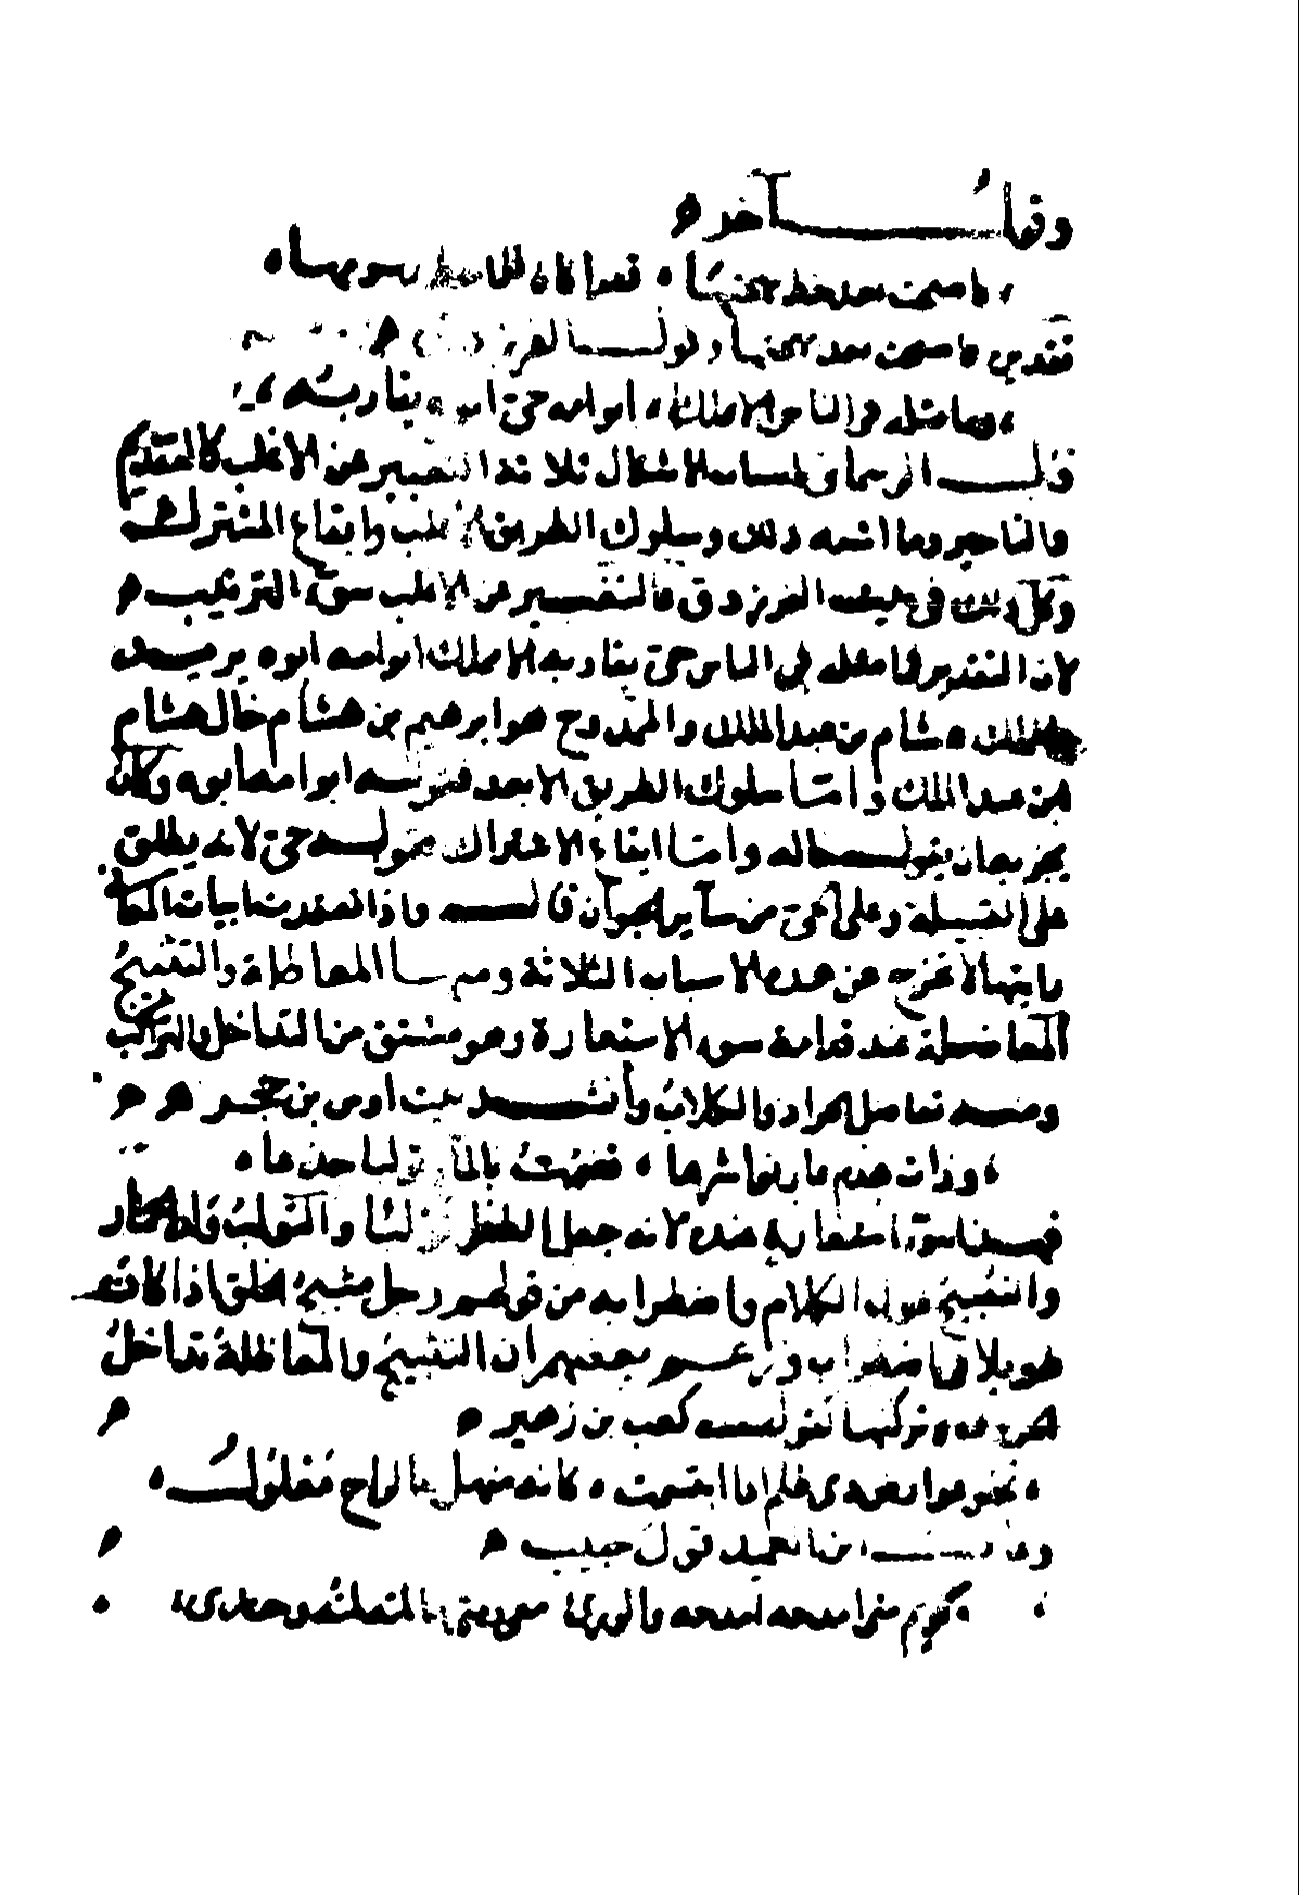 وقال آخر
فاصبحت بعد خط بهجتها ۰ قفرا كان رسومها
تقديره فاصبحت بعد بهجتها وقول الفرزدق
وما مثله في الناس الا مملكا ۰ ابو امه حي ابوه يقاربه
قال الرماني اسباب الاشكال ثلاثة التغيير عن الاغلب كالتقديم
والتاخير وما اشبه ذلك وسلوك الطريق الابعد وايقاع المشترك
وكل ذلك في بيت الفرزدق فالتغيير عن الاغلب سوء الترتيب
لان التقدير وما مثله في الناس حي يقاربه الا مملك ابو امه ابوه يريد
بالمملك هشام بن عبد الملك والممدوح هو ابرهيم بن هشام خال هشام
بن عبد الملك وامتا سلوك الطريق الابعد فقوله ابو امه ابوه وكان
يجزيه ان يقول خاله وامتا ايقاع الاشتراك فقوله حي لانه يطلق
على القبيلة وعلى الحي من سآير الحيوان قال واذا تفقدت ابيات المعاني
رايتها لا تخرج عن هذه الاسباب الثلاثة ومنها المعاظلة والتثبيج
المعاضلة عند قدامة سوء الاستعارة وهو مشتق من التداخل والتراكب
ومنه تعاضل الجراد والكلاب وأنشد بيت اوس بن حجر
وذات هدم عار نواشرها ۰ تصمت بالماء تولبا جدعا
فهذا سوء استعارة عنده لانه جعل الطفل تولبا والتولب ولد الحمار
والتثبيج طول الكلام واضطرابه من قولهم رجل مثبج الخلق اذا كان
طويلا في اضطراب وزعم بعضهم ان التثبيج والمعاظلة تداخل
الحروف وتركبها كقول كعب بن زهير
تجلو عوارض ذي ظلم اذا ابتسمت ۰ كانه منهل بالراح معلول
ابن العميد قول حبيب
كريم متى امدحه امدحه والورى معي ومتى ما لمته لمته وحدى